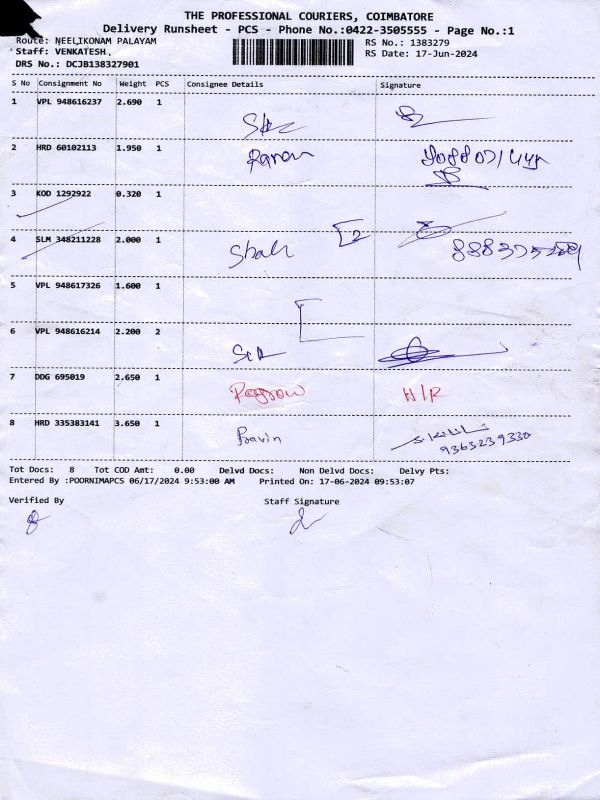 THE PROFESSIONAL COURIERS, COIMBATORE
Delivery Runsheet - PCS - Phone No.:0422-3505555 - Page No.:1
Route: NEELIKONAM PALAYAM
RS No.: 1383279
Staff: VENKATESH.
RS Date: 17-Jun-2024
DRS No.: DCJB138327901
S No Consignment No Weight PCS Consignee Details Signature
1 VPL 948616237 2.690 1
2 HRD 60102113 1.950 1
3 KOD 1292922 0.320 1
4 SLM 348211228 2.000 1 2
5 VPL 948617326 1.600 1
6 VPL 948616214 2.200 2
7 DDG 695019 2.650 1 H/R
8 HRD 335383141 3.650 1 Pravin
9363239330
Tot Docs: 8 Tot COD Amt: 0.00 Delvd Docs: Non Delvd Docs: Delvy Pts:
Entered By :POORNIMAPCS 06/17/2024 9:53:00 AM Printed On: 17-06-2024 09:53:07
Verified By Staff Signature